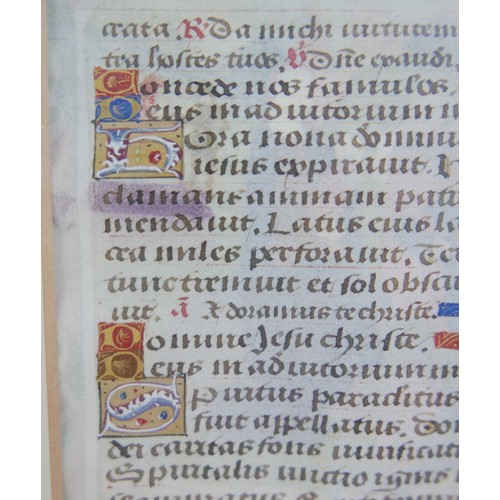 crata. R. Da michi virtutem
tra hostes tuos. V. Dñe exaudi.
Concede nos famulos.
Deus in adiutorium m
Hora nona dominu
iesus expiravit.
clamans animam patri
mendavit. Latus eius la
cea miles perforavit. Ter
tunc tremuit et sol obscu
vit. a Adoramus te christe.
Domine Jesu christe.
Deus in adiutorium m
Spiritus paraclitus
fuit appellatus. Don
dei caritas fons vivificati
Spiritalis unctio ignis